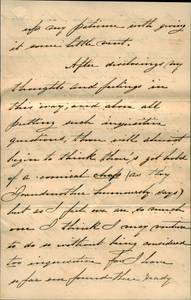 up my patience with giving
it some little vent.
After disclosing my
thoughts and feelings in
this way, and above all
putting such inquisitive
questions, thou wilt almost
begin to think thou's got hold
of a comical chap (as thy
Grandmother Summersby says)
but as I feel we are so much
one I think I may venture
to do so without being considered
too inquisitive for I have
so far ever found thee ready